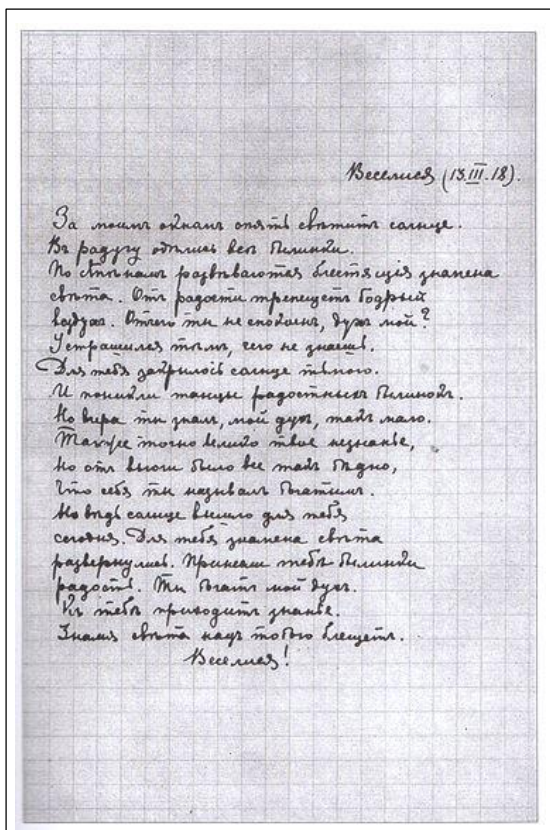 Веселися (13.III.18).
За моимъ окномъ опять свѣтитъ солнце.
Въ радугу одѣлись всѣ былинки.
По стѣнамъ развѣваются блестящія знамена
свѣта. Отъ радости трепещетъ бодрый
воздухъ. Отчего ты не спокоенъ, духъ мой?
Устрашился тѣмъ, чего не знаешь.
Для тебя закрылось солнце тьмою.
И поникли танцы радостныхъ былинокъ.
Но вчера ты зналъ, мой духъ, такъ мало.
Такъ же точно велико твое незнанье,
Но отъ вьюги было все такъ бѣдно,
Что себя ты называлъ богатымъ.
Но вѣдь солнце вышло для тебя
сегодня. Для тебя знамена свѣта
развернулись. Принесли тебѣ былинки
радость. Ты богатъ мой духъ.
Къ тебѣ приходитъ знанье.
Знамя свѣта надъ тобою блещетъ.
Веселися!